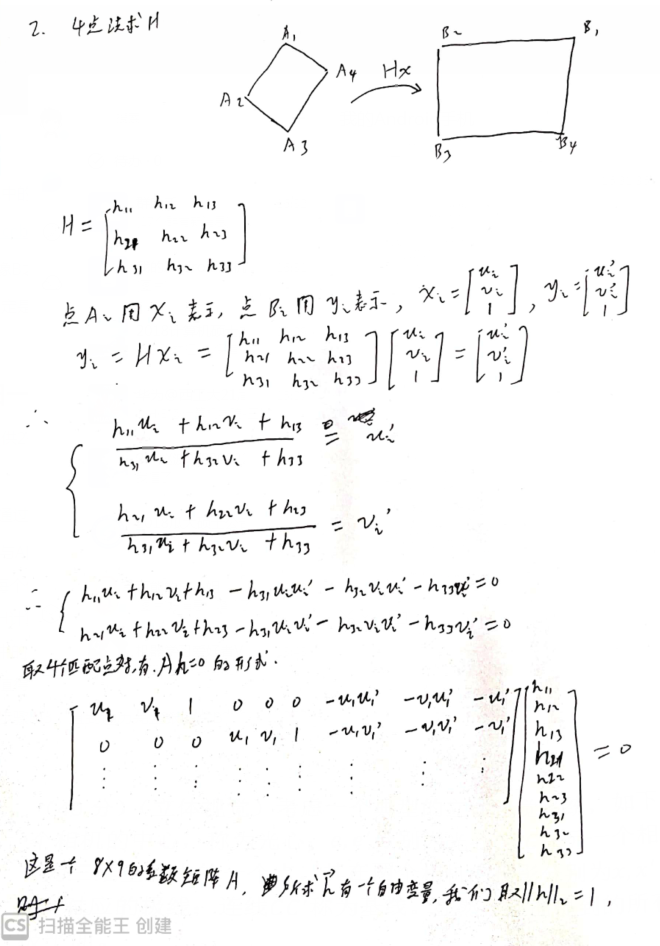 2. 4点法求H
A₁ A₂ A₃ A₄ Hx B₂ B₁ B₃ B₄
H = [h₁₁ h₁₂ h₁₃
h₂₁ h₂₂ h₂₃
h₃₁ h₃₂ h₃₃]
点Aᵢ用Xᵢ表示, 点Bᵢ用yᵢ表示, xᵢ=[uᵢ vᵢ 1], yᵢ=[uᵢ' vᵢ' 1]
yᵢ = Hxᵢ = [h₁₁ h₁₂ h₁₃
h₂₁ h₂₂ h₂₃
h₃₁ h₃₂ h₃₃] [uᵢ vᵢ 1] = [uᵢ' vᵢ' 1]
∴
h₁₁uᵢ + h₁₂vᵢ + h₁₃
h₃₁uᵢ + h₃₂vᵢ + h₃₃ = uᵢ'
h₂₁uᵢ + h₂₂vᵢ + h₂₃
h₃₁uᵢ + h₃₂vᵢ + h₃₃ = vᵢ'
∴ { h₁₁uᵢ + h₁₂vᵢ + h₁₃ - h₃₁uᵢuᵢ' - h₃₂vᵢuᵢ' - h₃₃uᵢ' = 0
h₂₁uᵢ + h₂₂vᵢ + h₂₃ - h₃₁uᵢvᵢ' - h₃₂vᵢvᵢ' - h₃₃vᵢ' = 0
取4个匹配点对,有Ah=0的形式.
u₁ v₁ 1 0 0 0 -u₁u₁' -v₁u₁' -u₁' h₁₁
h₁₂
0 0 0 u₁ v₁ 1 -u₁v₁' -v₁v₁' -v₁' h₁₃
h₂₁ = 0
h₂₂
h₂₃
h₃₁
h₃₂
h₃₃
这是一个8×9的系数矩阵A, 所求h有一个自由变量,我们取||h||₂=1,
CS 扫描全能王 创建